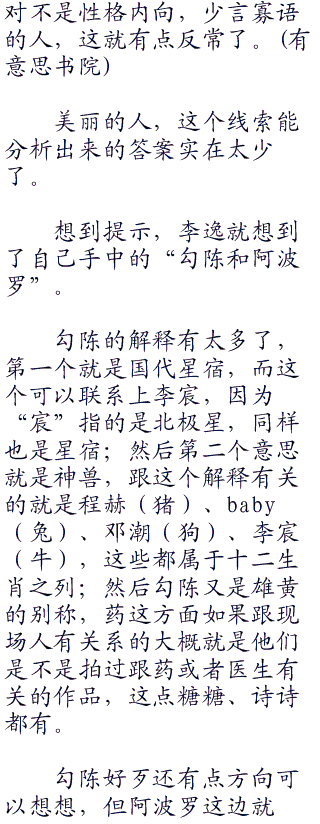 对不是性格内向，少言寡语
的人，这就有点反常了。(有
意思书院)
美丽的人，这个线索能
分析出来的答案实在太少
了。
想到提示，李逸就想到
了自己手中的“勾陈和阿波
罗”。
勾陈的解释有太多了，
第一个就是国代星宿，而这
个可以联系上李宸，因为
“宸”指的是北极星，同样
也是星宿；然后第二个意思
就是神兽，跟这个解释有关
的就是程赫（猪）、baby
（兔）、邓潮（狗）、李宸
（牛），这些都属于十二生
肖之列；然后勾陈又是雄黄
的别称，药这方面如果跟现
场人有关系的大概就是他们
是不是拍过跟药或者医生有
关的作品，这点糖糖、诗诗
都有。
勾陈好歹还有点方向可
以想想，但阿波罗这边就